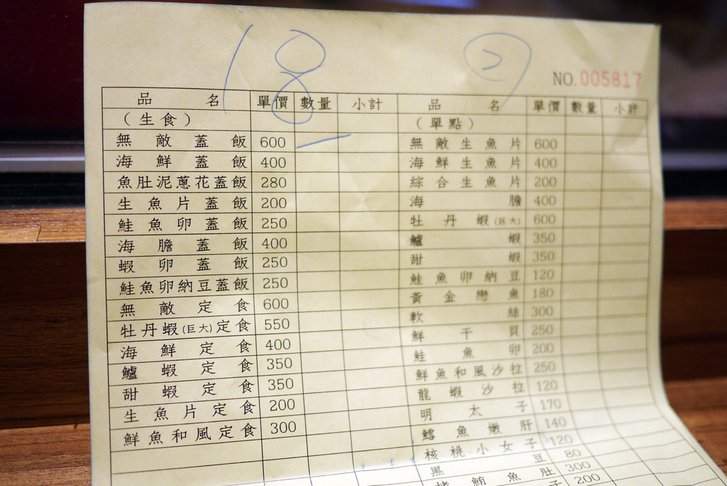 18
2
NO. 005817
品名 單價 數量 小計 品名 單價 數量 小計
(生食)
無敵蓋飯 600 一
海鮮蓋飯 400
魚肚泥蔥花蓋飯 280
生魚片蓋飯 200
鮭魚卵蓋飯 250
海膽蓋飯 400
蝦卵蓋飯 250
鮭魚卵納豆蓋飯 250
無敵定食 600
牡丹蝦(巨大)定食 550
海鮮定食 400
鱸蝦定食 350
甜蝦定食 350
生魚片定食 200
鮮魚和風定食 300
(單點)
無敵生魚片 600
海鮮生魚片 400
綜合生魚片 200
海膽 400
牡丹蝦(巨大) 600
鱸蝦 350
甜蝦 350
鮭魚卵納豆 120
黃金戀魚 180
軟絲 300
鮮干貝 250
鮭魚卵 200
鮮魚和風沙拉 250
龍蝦沙拉 120
明太子 170
鱈魚嫩肝 140
核桃小女子 120
豆 80
魚肚 300
200